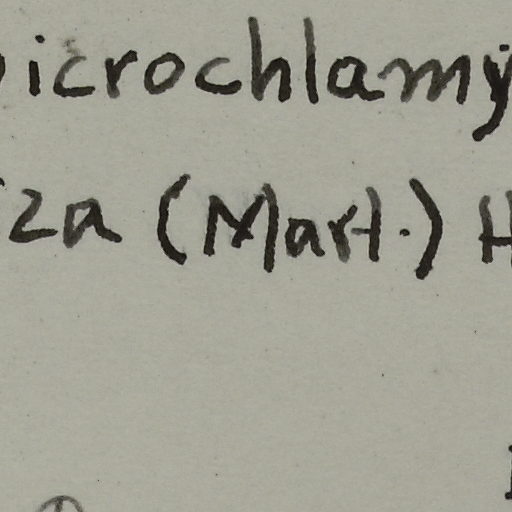 icrochlamy
za (Mart.) H